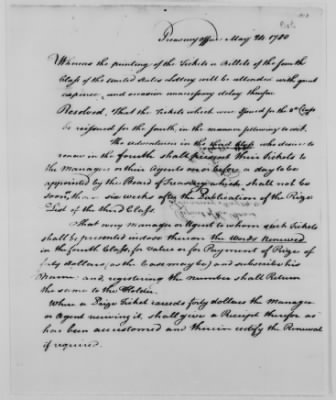 Treasury office May 24 1780
Whereas the printing of the Tickets or Billets of the fourth
Class of the United States Lottery will be attended with great
expence, and occasion unnecessary delay therefor
Resolved, That the Tickets which were issued for the 3d Class
be reissued for the fourth, in the manner following to wit.
The adventurers in the third Class who desire to
renew in the fourth shall present their Tickets to
the Managers or their Agents on or before a day to be
appointed by the Board of Treasury which shall not be
sooner than six weeks after the Publication of the Prize
List of the third Class.
That every manager or Agent to whom such Tickets
shall be presented indorse thereon the Words Renewed
in the fourth Class, for Value or for Payment of Prize of
forty dollars, as the case may be, and subscribe his
Name and registering the number shall Return
the same to the Holder.
When a Prize Ticket exceeds forty dollars the Manager
or Agent renewing it, shall give a Receipt therefor as
has been accustomed and therein certify the Renewal
if required.